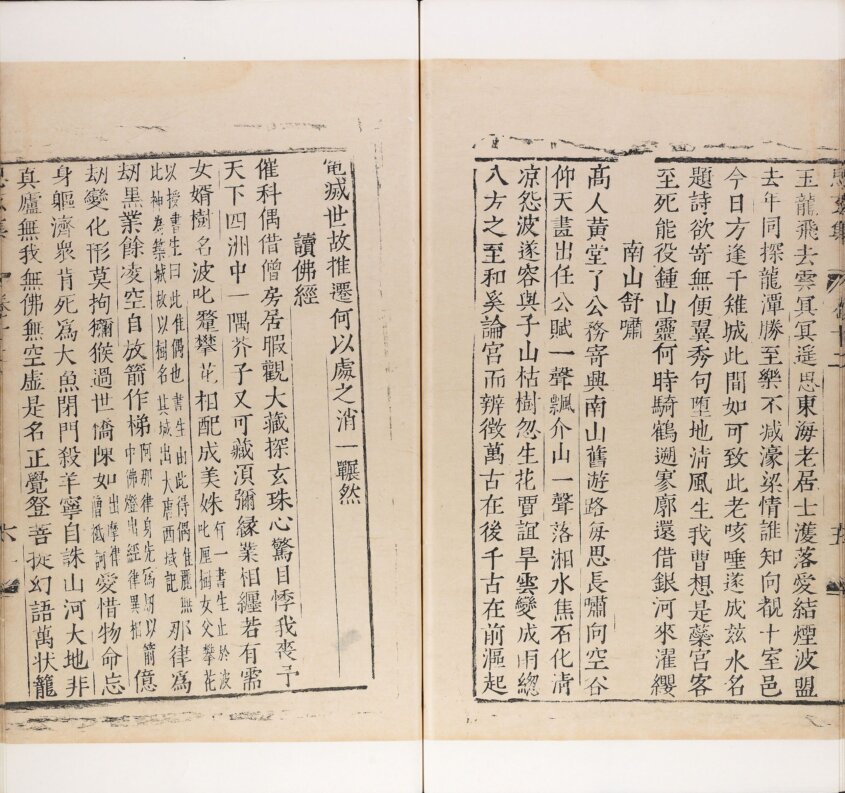 玉龍飛去雲冥冥遥思東海老居士濩落愛結煙波盟
去年同探龍潭勝至樂不减濠梁情誰知向覩十室邑
今日方逢千雉城此間如可致此老咳唾遂成兹水名
題詩欲寄無便翼秀句墮地清風生我曹想是蘂宮客
至死能役鍾山靈何時騎鶴遡寥廓還借銀河來濯纓
南山舒嘯
高人黄堂了公務寄興南山舊遊路每思長嘯向空谷
仰天晝出任公賦一聲飄介山一聲落湘水焦石化清
凉怨波遂容與子山枯樹忽生花賈誼旱雲變成雨總
八方之至和奚論宫而辨徵萬古在後千古在前漚起
漚滅世故推遷何以處之消一囅然
讀佛經
催科偶借僧房居暇觀大藏探玄珠心驚目悸我喪予
天下四洲中一隅芥子又可藏須彌緣業相纏若有需
女婿樹名波吒釐攀花相配成美姝有一書生止於波吒厘樹女父攀花
以授書生曰此隹偶也書生由此得偶隹麗無此神為築城故以樹名其城出大唐西域記那律爲
刼黑業餘凌空自放箭作梯阿那律身先爲刼以箭中佛燈出經律異相億
刼變化形莫拘獼猴過世憍㑛如出摩律僧祇訶愛惜物命忘
身軀濟衆肯死爲大魚閉門殺羊寧自誅山河大地非
真廬無我無佛無空虚是名正覺登菩提幻語萬状籠
十二
六